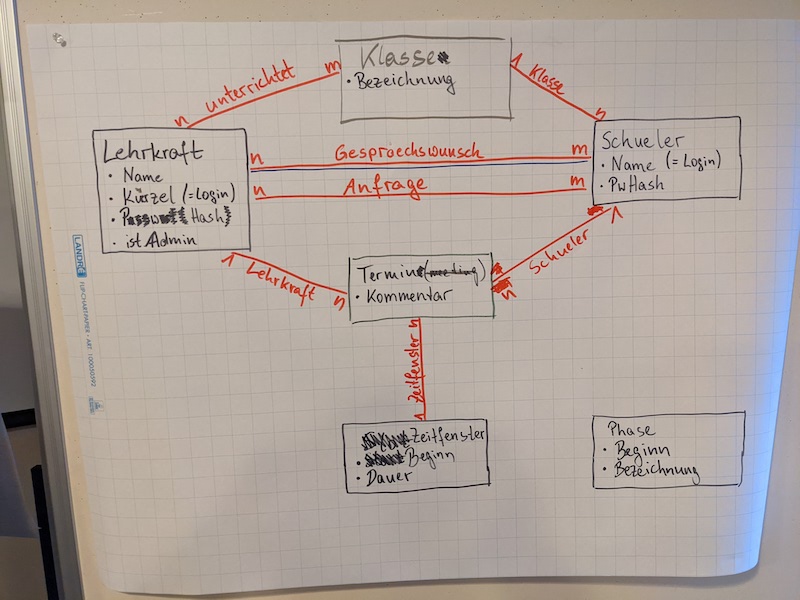 Klasse
• Bezeichnung
n unterrichtet m
1 Klasse n
Lehrkraft
• Name
• Kürzel (=Login)
• Hash
• ist Admin
n Gespraechswunsch m
n Anfrage m
Schueler
• Name (=Login)
• PwHash
1 Lehrkraft n
Termin (meeting)
• Kommentar
n Schueler 1
n Zeitfenster 1
Zeitfenster
• Beginn
• Dauer
Phase
• Beginn
• Bezeichnung
LANDRÉ FLIPCHARTPAPIER • ART. 100050592